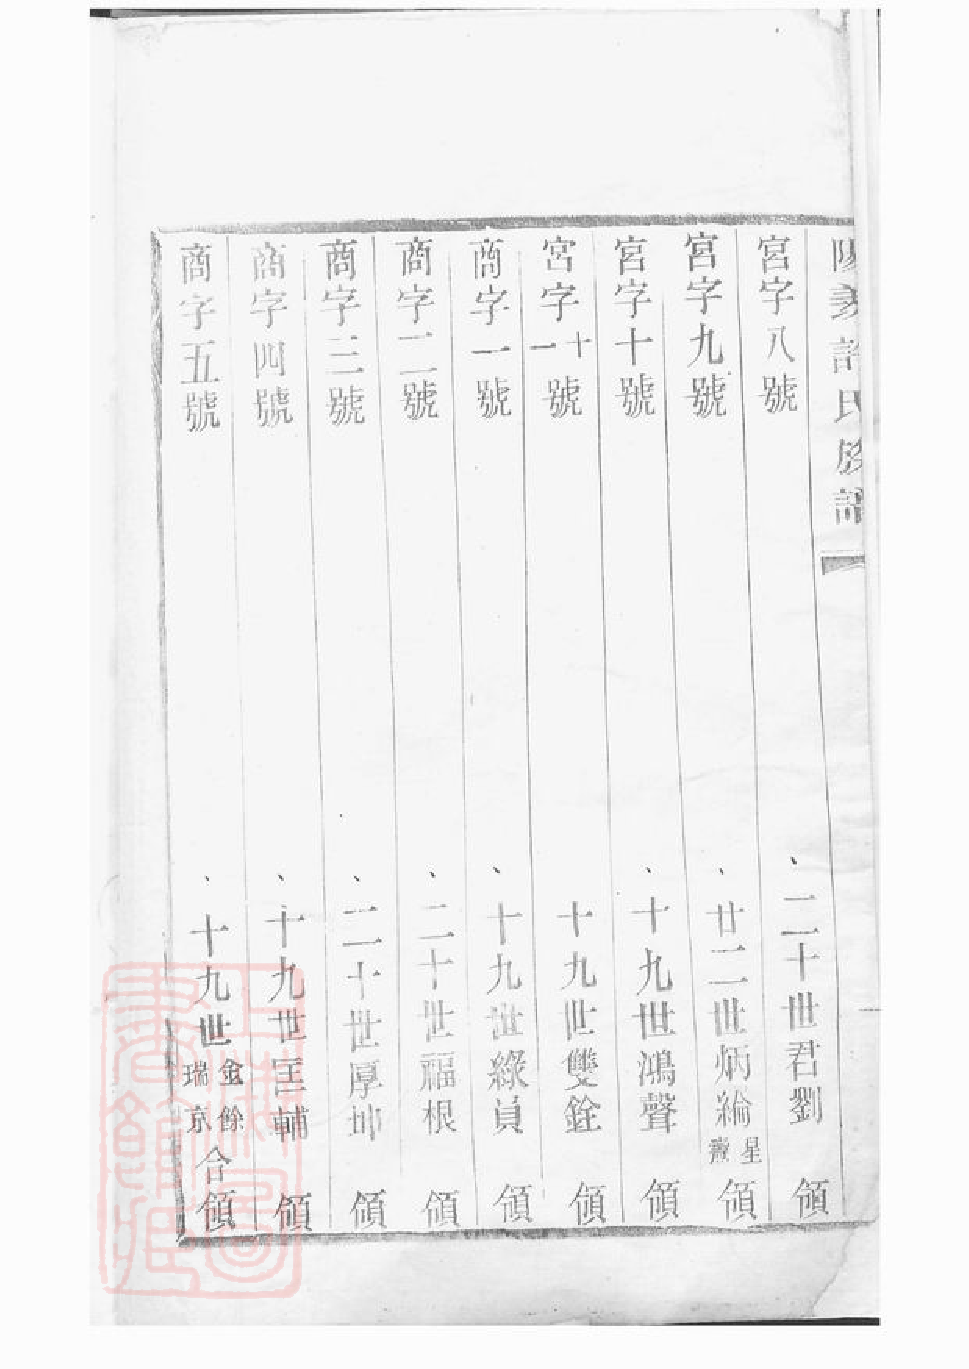 陽羡許氏族譜
宮字八號 、二十世君劉 領
宮字九號 、廿二世炳綸 星燾 領
宮字十號 、十九世鴻聲 領
宮字十一號 十九世雙銓 領
商字一號 、十九世綠員 領
商字二號 、二十世福根 領
商字三號 、二十世厚坤 領
商字四號 、十九世匡輔 領
商字五號 、十九世 金餘 瑞京 合領
上海圖書館藏